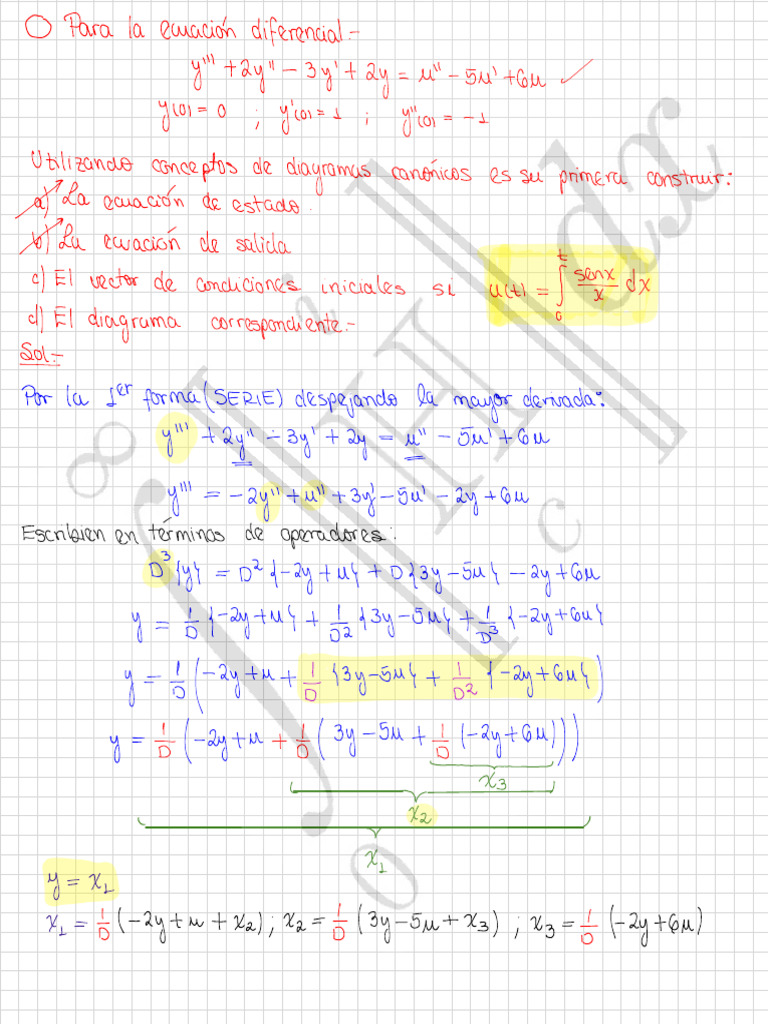 Para la ecuación diferencial.-
y''' + 2y'' - 3y' + 2y = u'' - 5u' + 6u ✓
y(0) = 0 ; y'(0) = 1 ; y''(0) = -1
Utilizando conceptos de diagramas canónicos es su primera construir:
a) La ecuación de estado.
b) La ecuación de salida
c) El vector de condiciones iniciales si u(t) = ∫₀ᵗ senx/x dx
d) El diagrama correspondiente.-
Sol:-
Por la 1er forma (SERIE) despejando la mayor derivada:
y''' + 2y'' - 3y' + 2y = u'' - 5u' + 6u
y''' = -2y'' + u'' + 3y' - 5u' - 2y + 6u
Escribien en términos de operadores:
D³{y} = D²{-2y+u} + D{3y-5u} - 2y+6u
y = 1/D {-2y+u} + 1/D² {3y-5u} + 1/D³ {-2y+6u}
y = 1/D (-2y+u + 1/D {3y-5u} + 1/D² {-2y+6u})
y = 1/D (-2y+u + 1/D (3y-5u + 1/D (-2y+6u)))
x3
x2
x1
y = x1
x1 = 1/D (-2y+u+x2) ; x2 = 1/D (3y-5u+x3) ; x3 = 1/D (-2y+6u)